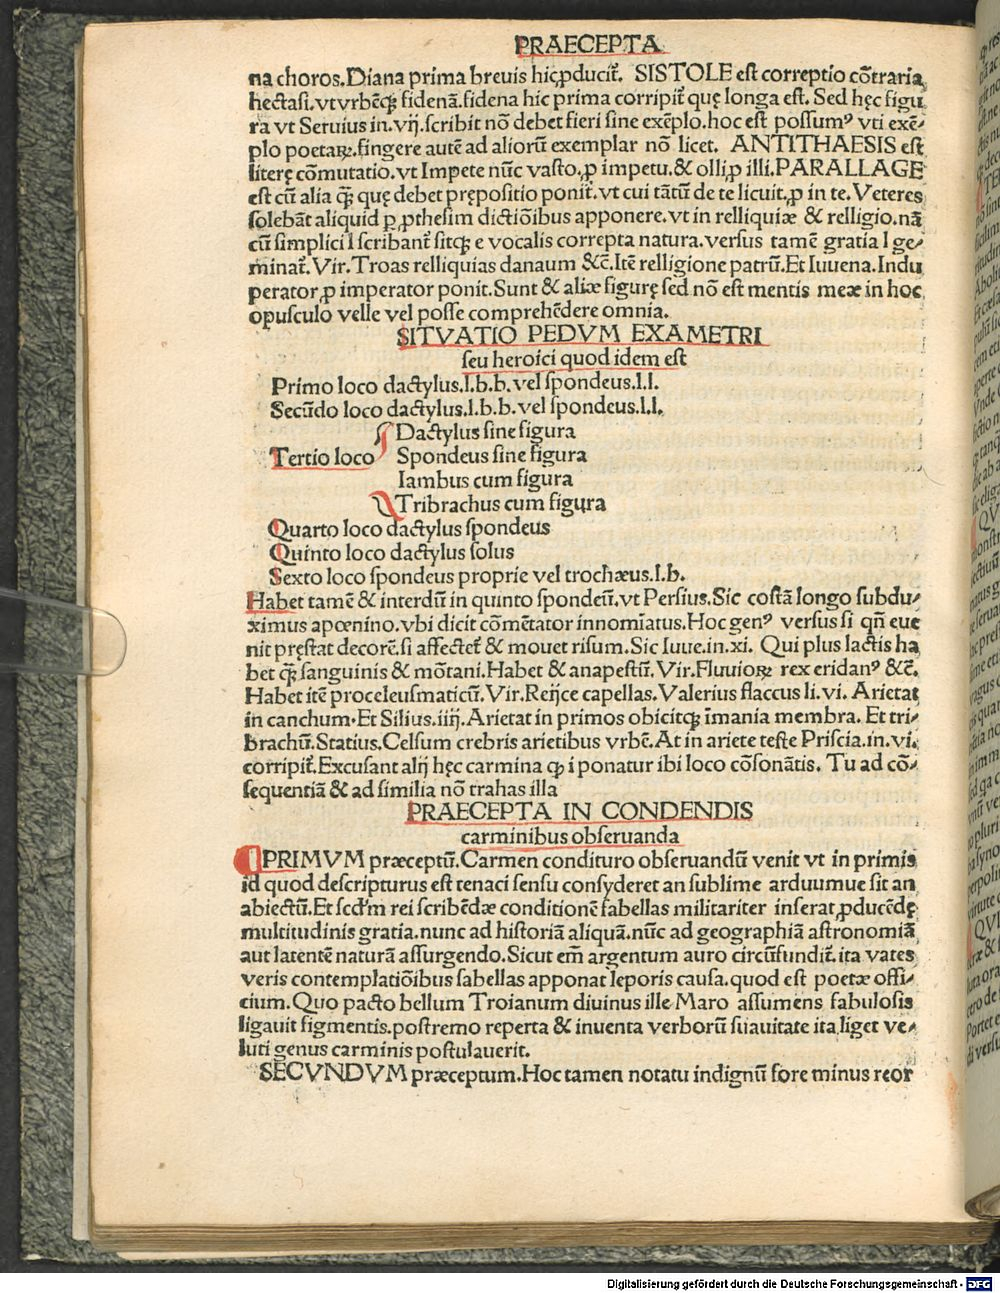 PRAECEPTA
na choros.Diana prima breuis hic ꝓducit᷑. SISTOLE eſt correptio cōtraria
hectaſi.vt vrbēqꝫ fidenā.fidena hic prima corripit᷑ quę longa eſt. Sed hęc figu
ra vt Seruius in.vij.ſcribit nō debet fieri ſine exēplo.hoc eſt poſſumꝰ vti exē⸗
plo poetaꝝ.fingere autē ad aliorū exemplar nō licet. ANTITHAESIS eſt
literę cōmutatio.vt Impete nūc vaſto.ꝓ impetu.& olli.ꝓ illi.PARALLAGE
eſt cū alia qꝫ̄ quę debet prępoſitio ponit᷑.vt cui tātū de te licuit.ꝓ in te. Veteres
ſolebāt aliquid ꝑ ꝓtheſim dictiōibus apponere.vt in relliquiæ & relligio.nā
cū ſimplici l ſcribant᷑ ſitqꝫ e vocalis correpta natura.verſus tamē gratia l ge⸗
minat᷑. Vir. Troas relliquias danaum &c̄. Itē relligione patrū. Et Iuuena. Indu
perator ꝓ imperator ponit. Sunt & aliæ figurę ſed nō eſt mentis meæ in hoc
opuſculo velle vel poſſe comprehēdere omnia.
SITVATIO PEDVM EXAMETRI
ſeu heroici quod idem eſt
Primo loco dactylus.l.b.b. vel ſpondeus.l.l.
Secūdo loco dactylus.l.b.b. vel ſpondeus.l.l.
Dactylus ſine figura
Tertio loco Spondeus ſine figura
Iambus cum figura
Tribrachus cum figura
Quarto loco dactylus ſpondeus
Quinto loco dactylus ſolus
Sexto loco ſpondeus proprie vel trochæus.l.b.
Habet tamē & interdū in quinto ſpondeū.vt Perſius.Sic coſtā longo ſubdu⸗
ximus apœnino.vbi dicit cōmētator innomiatus.Hoc genꝰ verſus ſi qn̄ eue
nit pręſtat decorē.ſi affectet᷑ & mouet riſum. Sic Iuue.in.xi. Qui plus lactis ha
bet qꝫ̄ ſanguinis & mōtani.Habet & anapeſtū. Vir.Fluuioꝝ rex eridanꝰ &c̄.
Habet itē proceleuſmaticū. Vir. Reijce capellas. Valerius flaccus li. vi. Arietat
in canchum. Et Silius.iiij. Arietat in primos obicitqꝫ īmania membra. Et tri⸗
brachū. Statius. Celſum crebris arietibus vrbē. At in ariete teſte Priſcia. in. vi.
corripit᷑. Excuſant alij hęc carmina ꝙ i ponatur ibi loco cōſonātis. Tu ad cō⸗
ſequentiā & ad ſimilia nō trahas illa
PRAECEPTA IN CONDENDIS
carminibus obſeruanda
PRIMVM præceptū. Carmen condituro obſeruandū venit vt in primis
id quod deſcripturus eſt tenaci ſenſu conſyderet an ſublime arduumue ſit an
abiectū. Et ſcd̄m rei ſcribēdæ conditionē fabellas militariter inſerat ꝓducēdę
multitudinis gratia.nunc ad hiſtoriā aliquā.nūc ad geographiā aſtronomiā
aut latentē naturā aſſurgendo. Sicut em̄ argentum auro circūfundit᷑. ita vates
veris contemplatiōibus fabellas apponat leporis cauſa.quod eſt poetæ offi⸗
cium. Quo pacto bellum Troianum diuinus ille Maro aſſumens fabuloſis
ligauit figmentis.poſtremo reperta & inuenta verborū ſuauitate ita liget ve⸗
luti genus carminis poſtulauerit.
SECVNDVM præceptum. Hoc tamen notatu indignū fore minus reor
Digitalisierung gefördert durch die Deutsche Forschungsgemeinschaft - DFG